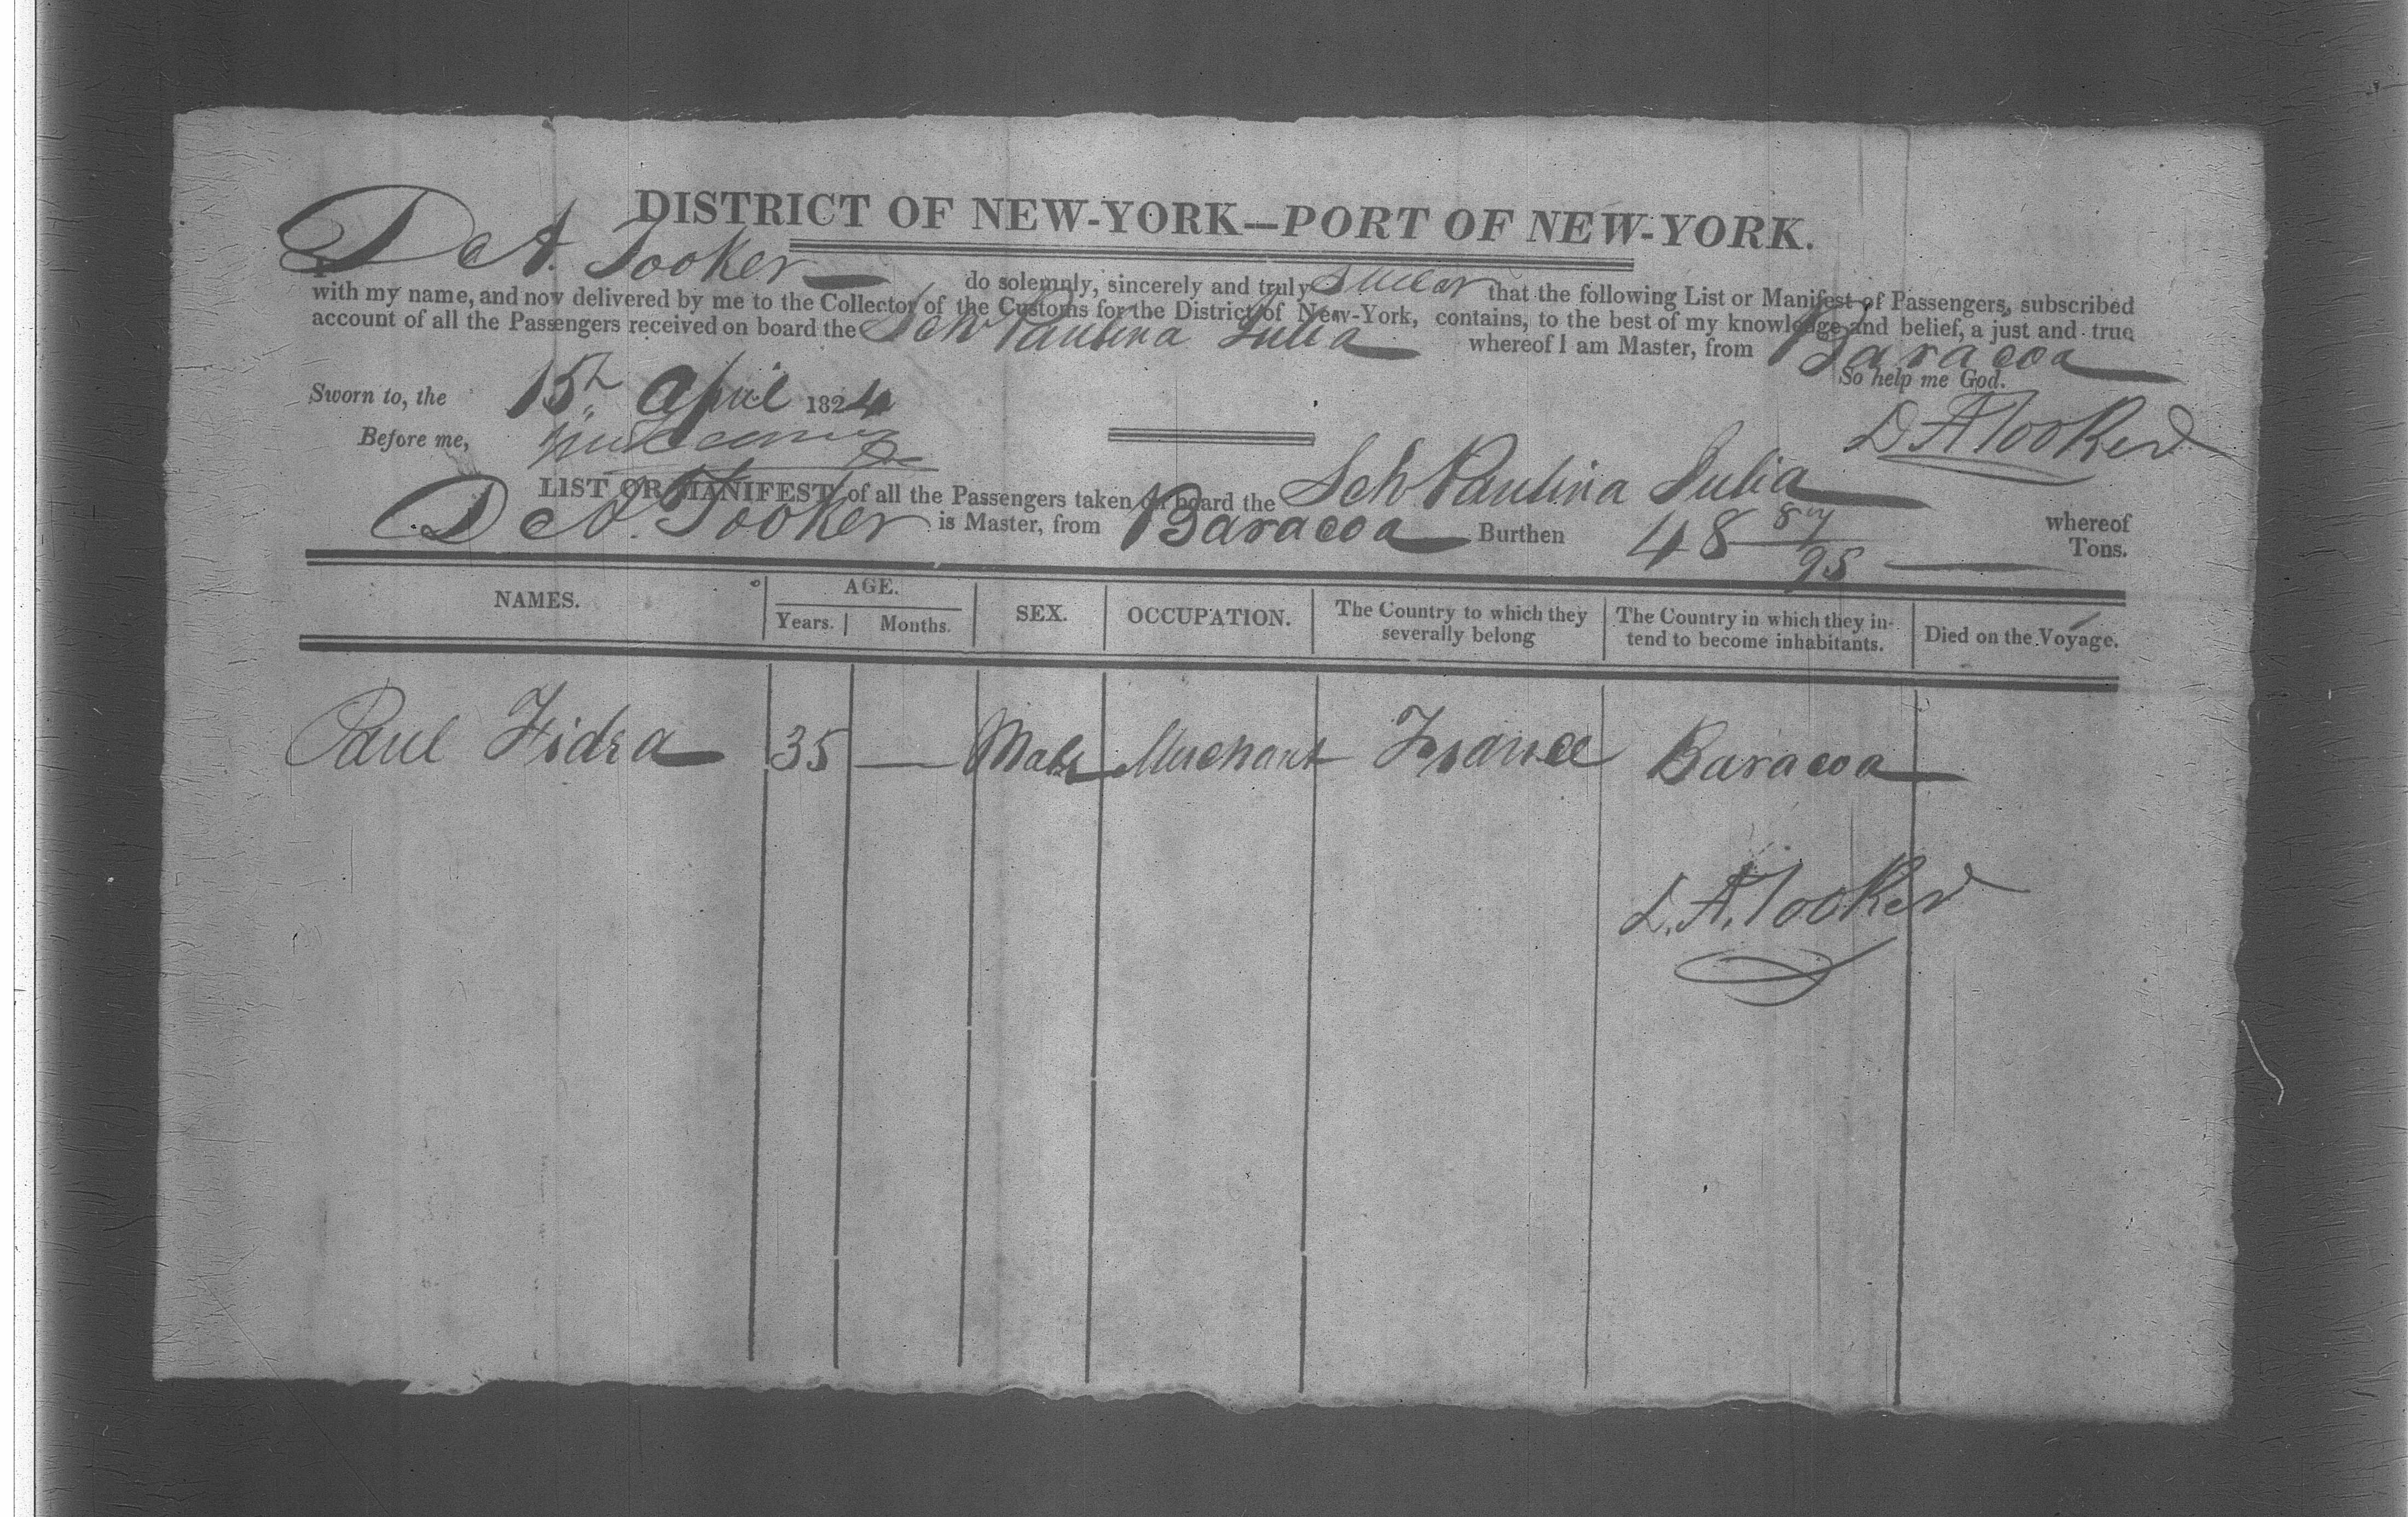 DISTRICT OF NEW-YORK—PORT OF NEW-YORK.
I De A. Tooker do solemnly, sincerely and truly Swear that the following List or Manifest of Passengers, subscribed
with my name, and now delivered by me to the Collector of the Customs for the District of New-York, contains, to the best of my knowledge and belief, a just and true
account of all the Passengers received on board the Sch Paulina Julia whereof I am Master, from Baracoa
So help me God.
Sworn to, the 15th April 1824
D A Tooker
Before me,
LIST OR MANIFEST of all the Passengers taken on board the Sch Paulina Julia whereof
De A. Tooker is Master, from Baracoa Burthen 48 87/95 Tons.
NAMES. AGE. SEX. OCCUPATION. The Country to which they severally belong The Country in which they in-tend to become inhabitants. Died on the Voyage.
Years. Months.
Paul Fidra 35 — Male Merchant France Baracoa
D. A. Tooker